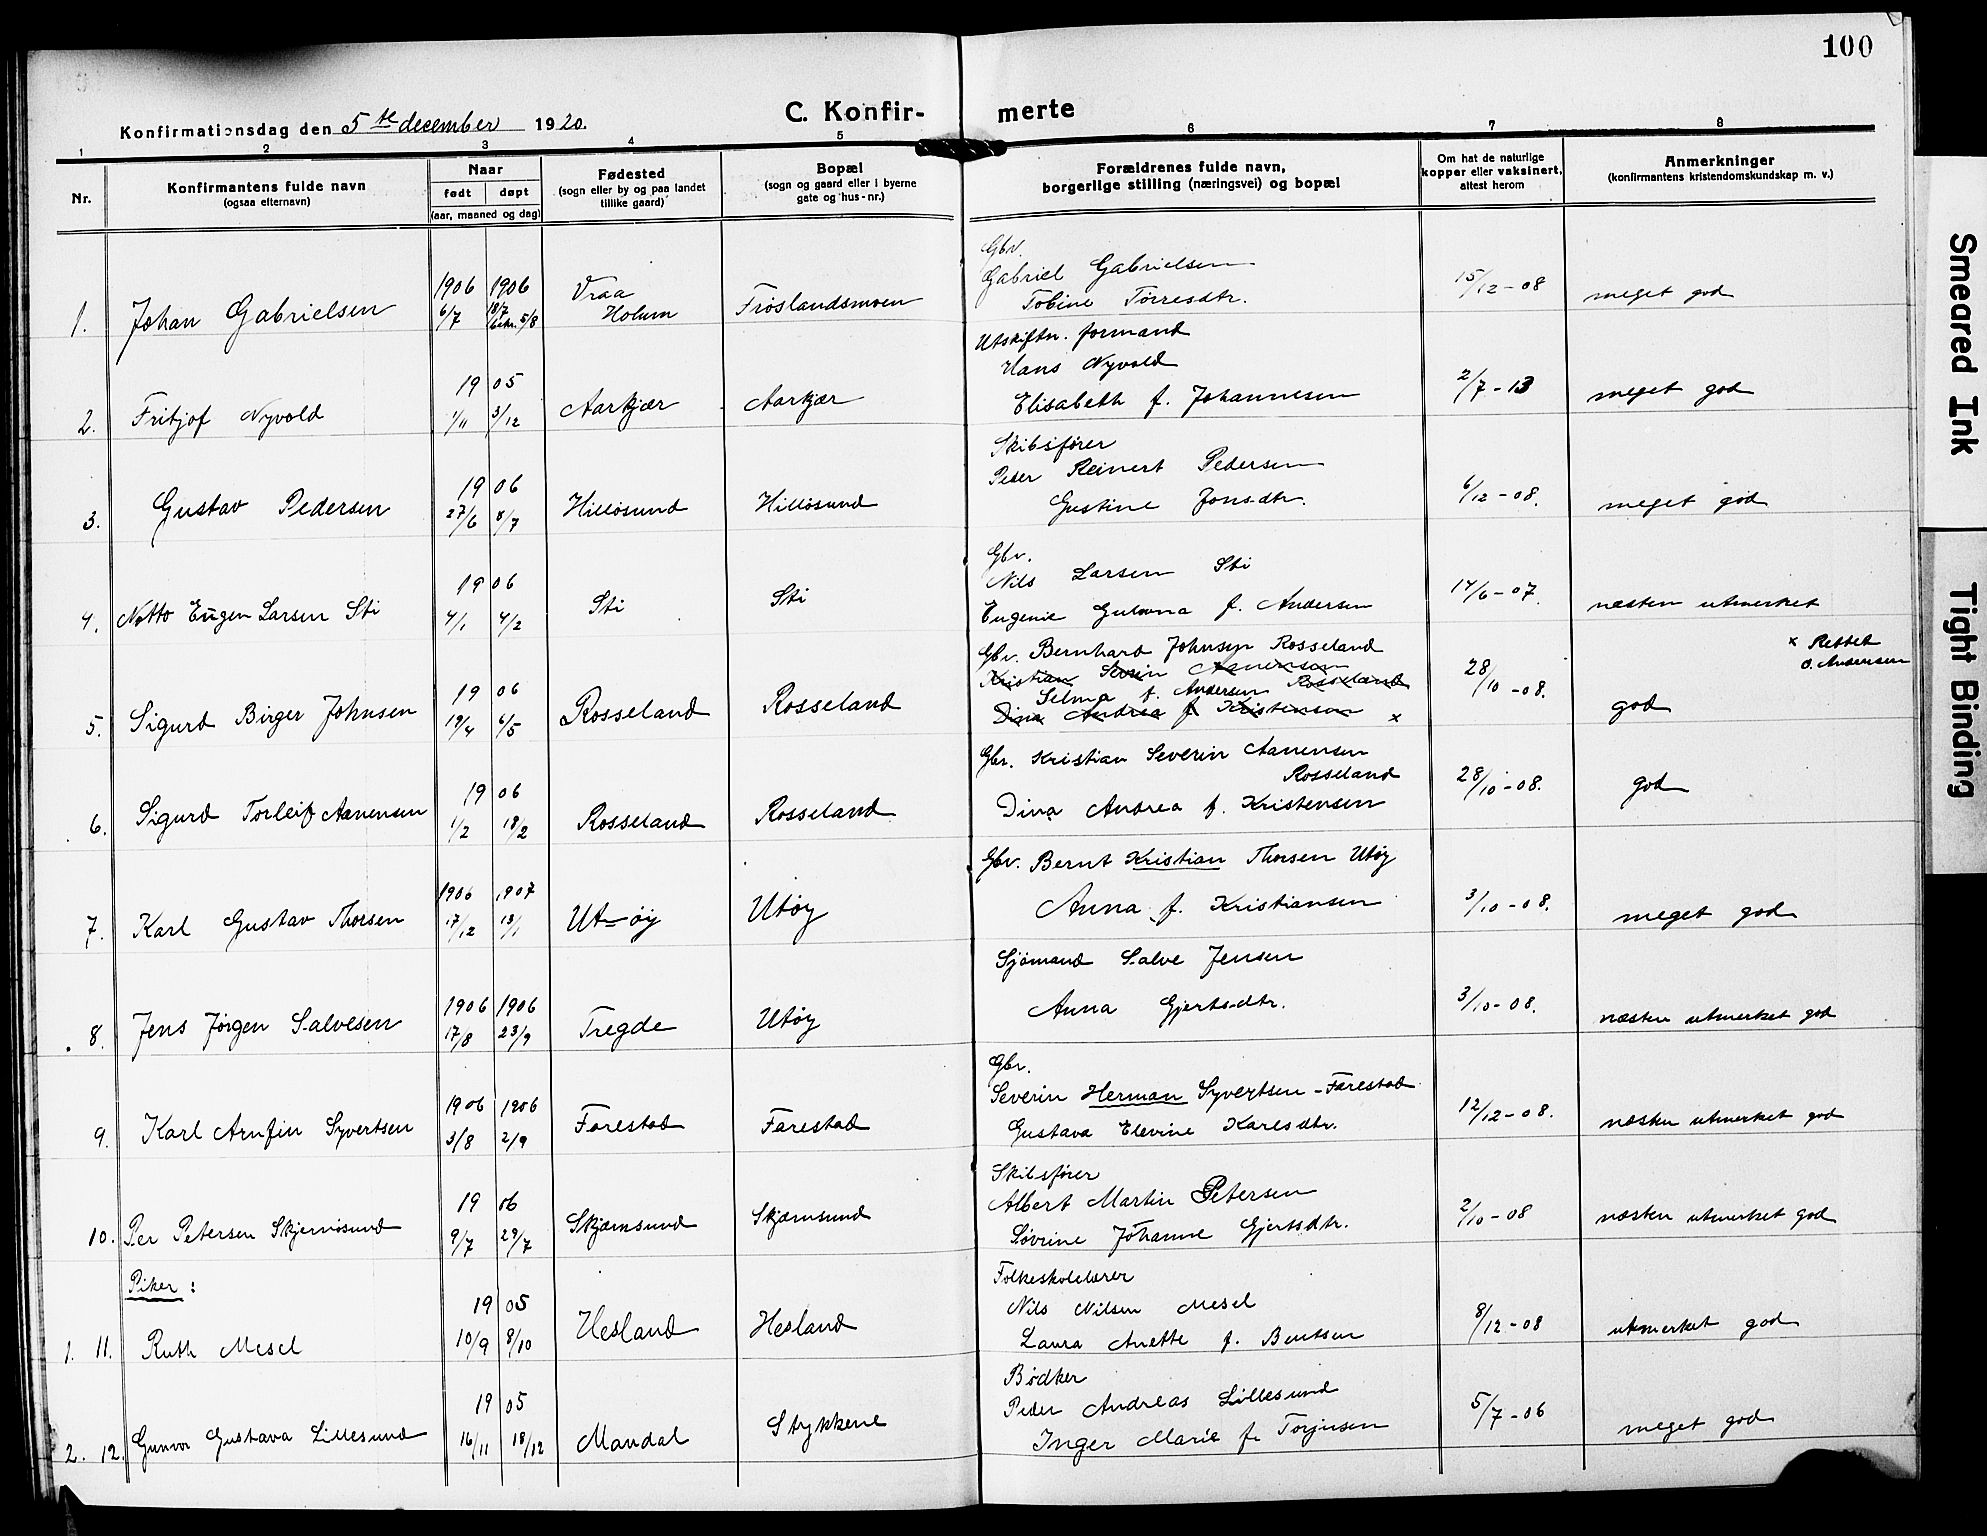 100
Konfirmationsdag den 5te december 1920.
C. Konfirmerte
1 2 3 4 5 6 7 8
Nr.
Konfirmantens fulde navn
(ogsaa efternavn)
Naar
født døpt
(aar, maaned og dag)
Fødested
(sogn eller by og paa landet
tillike gaard)
Bopæl
(sogn og gaard eller i byerne
gate og hus-nr.)
Forældrenes fulde navn,
borgerlige stilling (næringsvei) og bopæl
Om hat de naturlige
kopper eller vaksinert,
attest herom
Anmerkninger
(konfirmantens kristendomskundskap m. v.)
1. Johan Gabrielsen
1906 1906
6/7 5/8
Vraa
Holum
Frøslandsmoen
Gbr.
Gabriel Gabrielsen
Tobine Tørresdtr.
15/12-08
meget god
2. Fritjof Nyvold
19 05
1/11 3/12
Aarkjær
Aarkjær
Utskiftn. formand
Hans Nyvold
Elisabeth f. Johannesen
2/7-13
meget god
3. Gustav Pedersen
19 06
27/6 8/7
Hilløsund
Hilløsund
Skibsfører
Peder Reinert Pedersen
Gustine Jonsdtr.
6/12-08.
meget god
4. Notto Eugen Larsen Sti
19 06
4/1 4/2
Sti
Sti
Gbr.
Nils Larsen Sti
Eugenie f. Andersen
14/6-07.
næsten utmerket
5. Sigurd Birger Johnsen
19 06
19/4 6/5
Rosseland
Rosseland
Gbr. Bernhard Johnsen Rosseland
Kristian Severin Aanensen
Selma f. Andersen Rosseland
Dina Andrea f. Kristensen x
28/10-08.
god
x Rettet
O. Andersen
6. Sigurd Torleif Aanensen
19 06
1/2 18/2
Rosseland
Rosseland
Gbr. Kristian Severin Aanensen
Rosseland
Dina Andrea f. Kristensen
28/10-08.
god
7. Karl Gustav Thorsen
1906 1907
17/12 13/1
Ut-øy
Utøy
Gbr. Bernt Kristian Thorsen Utøy
Anna f. Kristiansen
3/10-08.
meget god
8. Jens Jørgen Salvesen
1906 1906
17/8 23/9
Tregde
Utøy
Sjømand Salve Jensen
Anna Gjertsdtr.
3/10-08.
næsten utmerket god
9. Karl Arnfin Syvertsen
1906 1906
3/8 2/9
Farestad
Farestad
Gbr.
Severin Herman Syvertsen - Farestad
Gustava Elevine Karlsdtr.
12/12-08.
næsten utmerket god
10. Per Petersen Skjernøsund
19 06
9/7 29/7
Skjærnsund
Skjærnsund
Skibsfører
Albert Martin Petersen
Søvrine Johanne Gjertsdtr.
2/10-08
næsten utmerket god
Piker:
1. 11. Ruth Mesel
19 05
10/9 8/10
Hesland
Hesland
Folkeskolelærer
Nils Nilsen Mesel
Laura Anette f. Bentsen
8/12-08
utmerket god
2. 12. Gunvor Gustava Lillesund
19 05
16/11 18/12
Mandal
Stykkene
Bødker
Peder Andreas Lillesund
Inger Marie f. Torjusen
5/7-06
meget god
Smeared Ink
Tight Binding